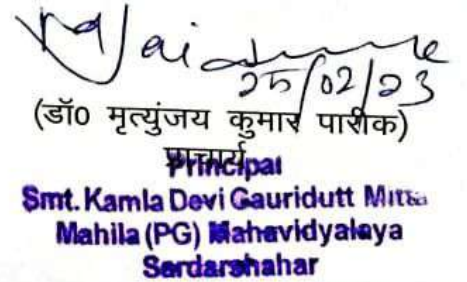 25/02/23
(डॉ0 मृत्युंजय कुमार पारीक)
प्राचार्य
Principal
Smt. Kamla Devi Gauridutt Mitta
Mahila (PG) Mahavidyalaya
Sardarshahar